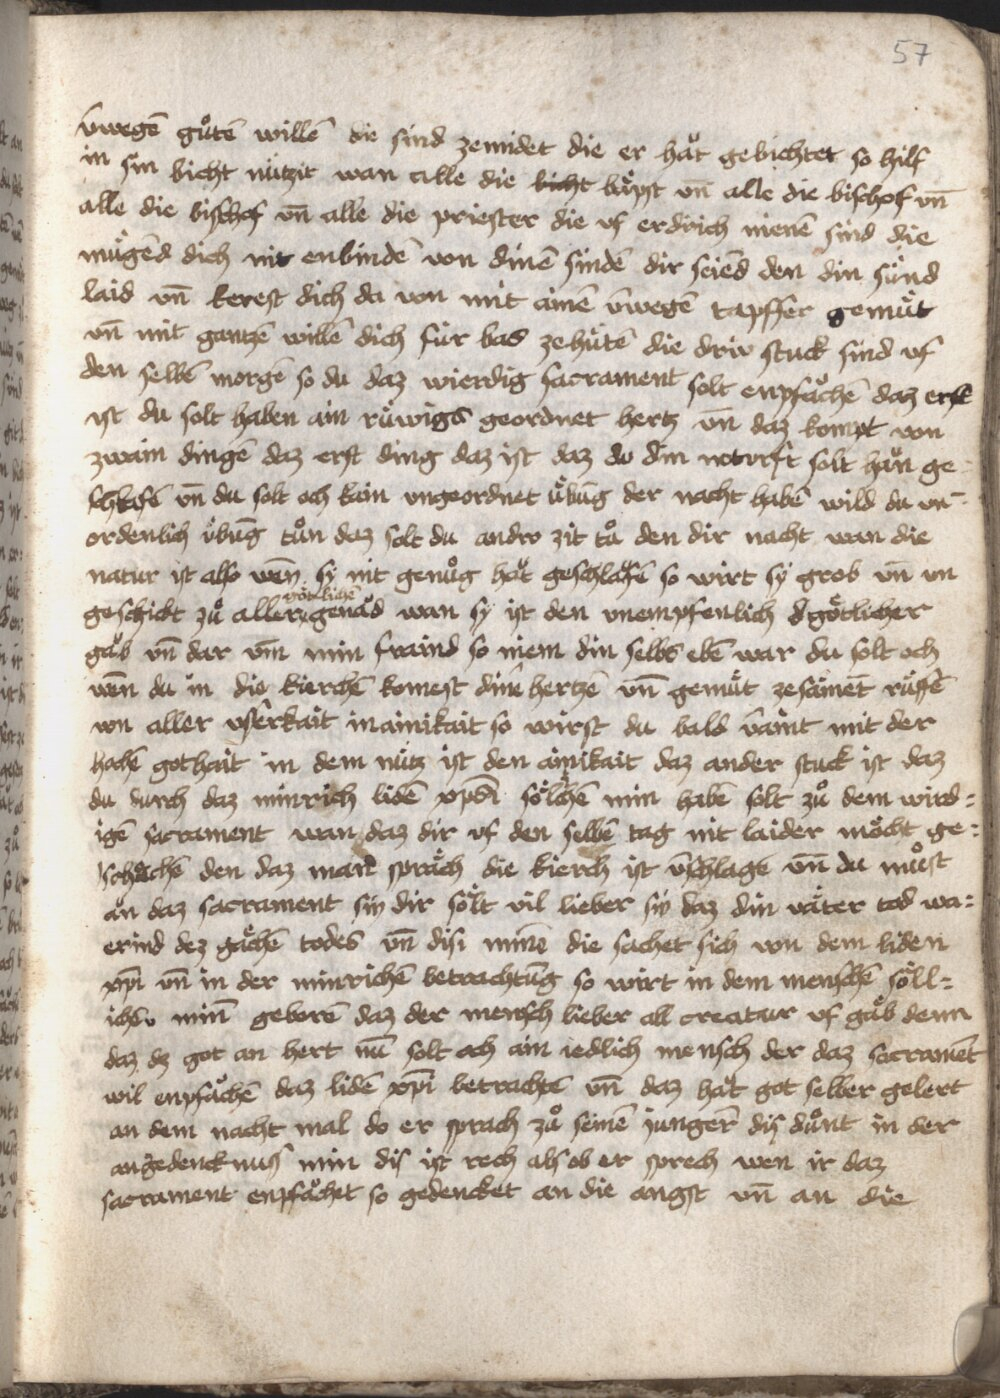 57
v̄wegē gůtē willē die sind zemidet die er hăt gebichtet so hilf
in sin bicht nützit wan alle die bicht bäpst vn̄ alle die bischof vn̄
alle die bischof vn̄ alle die priester die vf erdrich nienē sind die
mügēd dich nit enbindē von dinē sindē dir seiēd den din sünd
laid vn̄ kerest dich da von mit ainē v̄wegē tapffer gemüt
vn̄ mit gantzē willē dich für bas zehütē die driv stuck sind vf
den selbē morgē so du daz wierdig sacrament solt enpfachē daz erst
ist du solt haben ain rüwigs geordnet hertz vn̄ daz kompt von
zwain dingē daz erst ding daz ist daz do din notürft solt han ge
schlafē vn̄ du solt och kain vngeordnet übūg der nacht habē wild du vn̄-
ordenlich übūg tůn daz solt du andro zit tů den dir nacht wan die
natur ist also wen sy nit genůg hăt geschlafē so wirt sy grob vn̄ vn
geschickt zů aller götlichē genad wan sy ist den vnempfenlich d götlicher
gäb vn̄ dar vm min fraind so niem din selbs ebē war du solt och
wen du in die kierchē komest dine hertzē vn̄ gemüt zesamet rüffē
von aller vserkait in ainikait so wirst du bald v̄aint mit der
hachē gothait in dem nütz ist den ainikait daz ander stuck ist daz
du durch daz minrich lidē xpi sölchē min habē solt zů dem wird=
igē sacrament wan daz dir vf den selbē tag nit laider möcht ge=
schächē den daz man spräch die kierch ist v̄schlagē vn̄ du můst
än daz sacrament sin dir sölt vil lieber sin daz din väter tod wa=
erind dez gächē todes vn̄ disi minē die sachet sich von dem liden
xpi vn̄ in der minrichē betrachtūg so wirt in dem menschē söll=
ichē min̄ geborē daz der mensch lieber all creatur vf gäb denn
daz dz got an hert nū solt och ain iedlich mensch der daz sacramēt
wil enpfachē daz lidē xpi betrachtē vn̄ daz hăt got selber gelert
an dem nacht mal do er sprach zů seinē jungerē dis důnt in der
angedencknuss min dis ist rech als ob er sprech wen ir daz
sacrament enpfachet so gedencket an die angst vn̄ an die